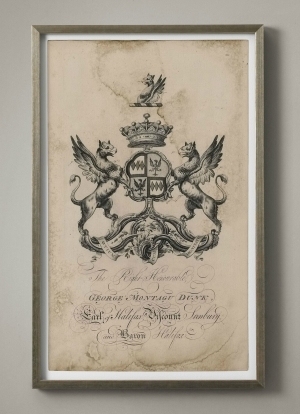 The Right Honourable
GEORGE MONTAGU DUNK,
Earl of Halifax, Viscount Sunbury
and Baron Halifax